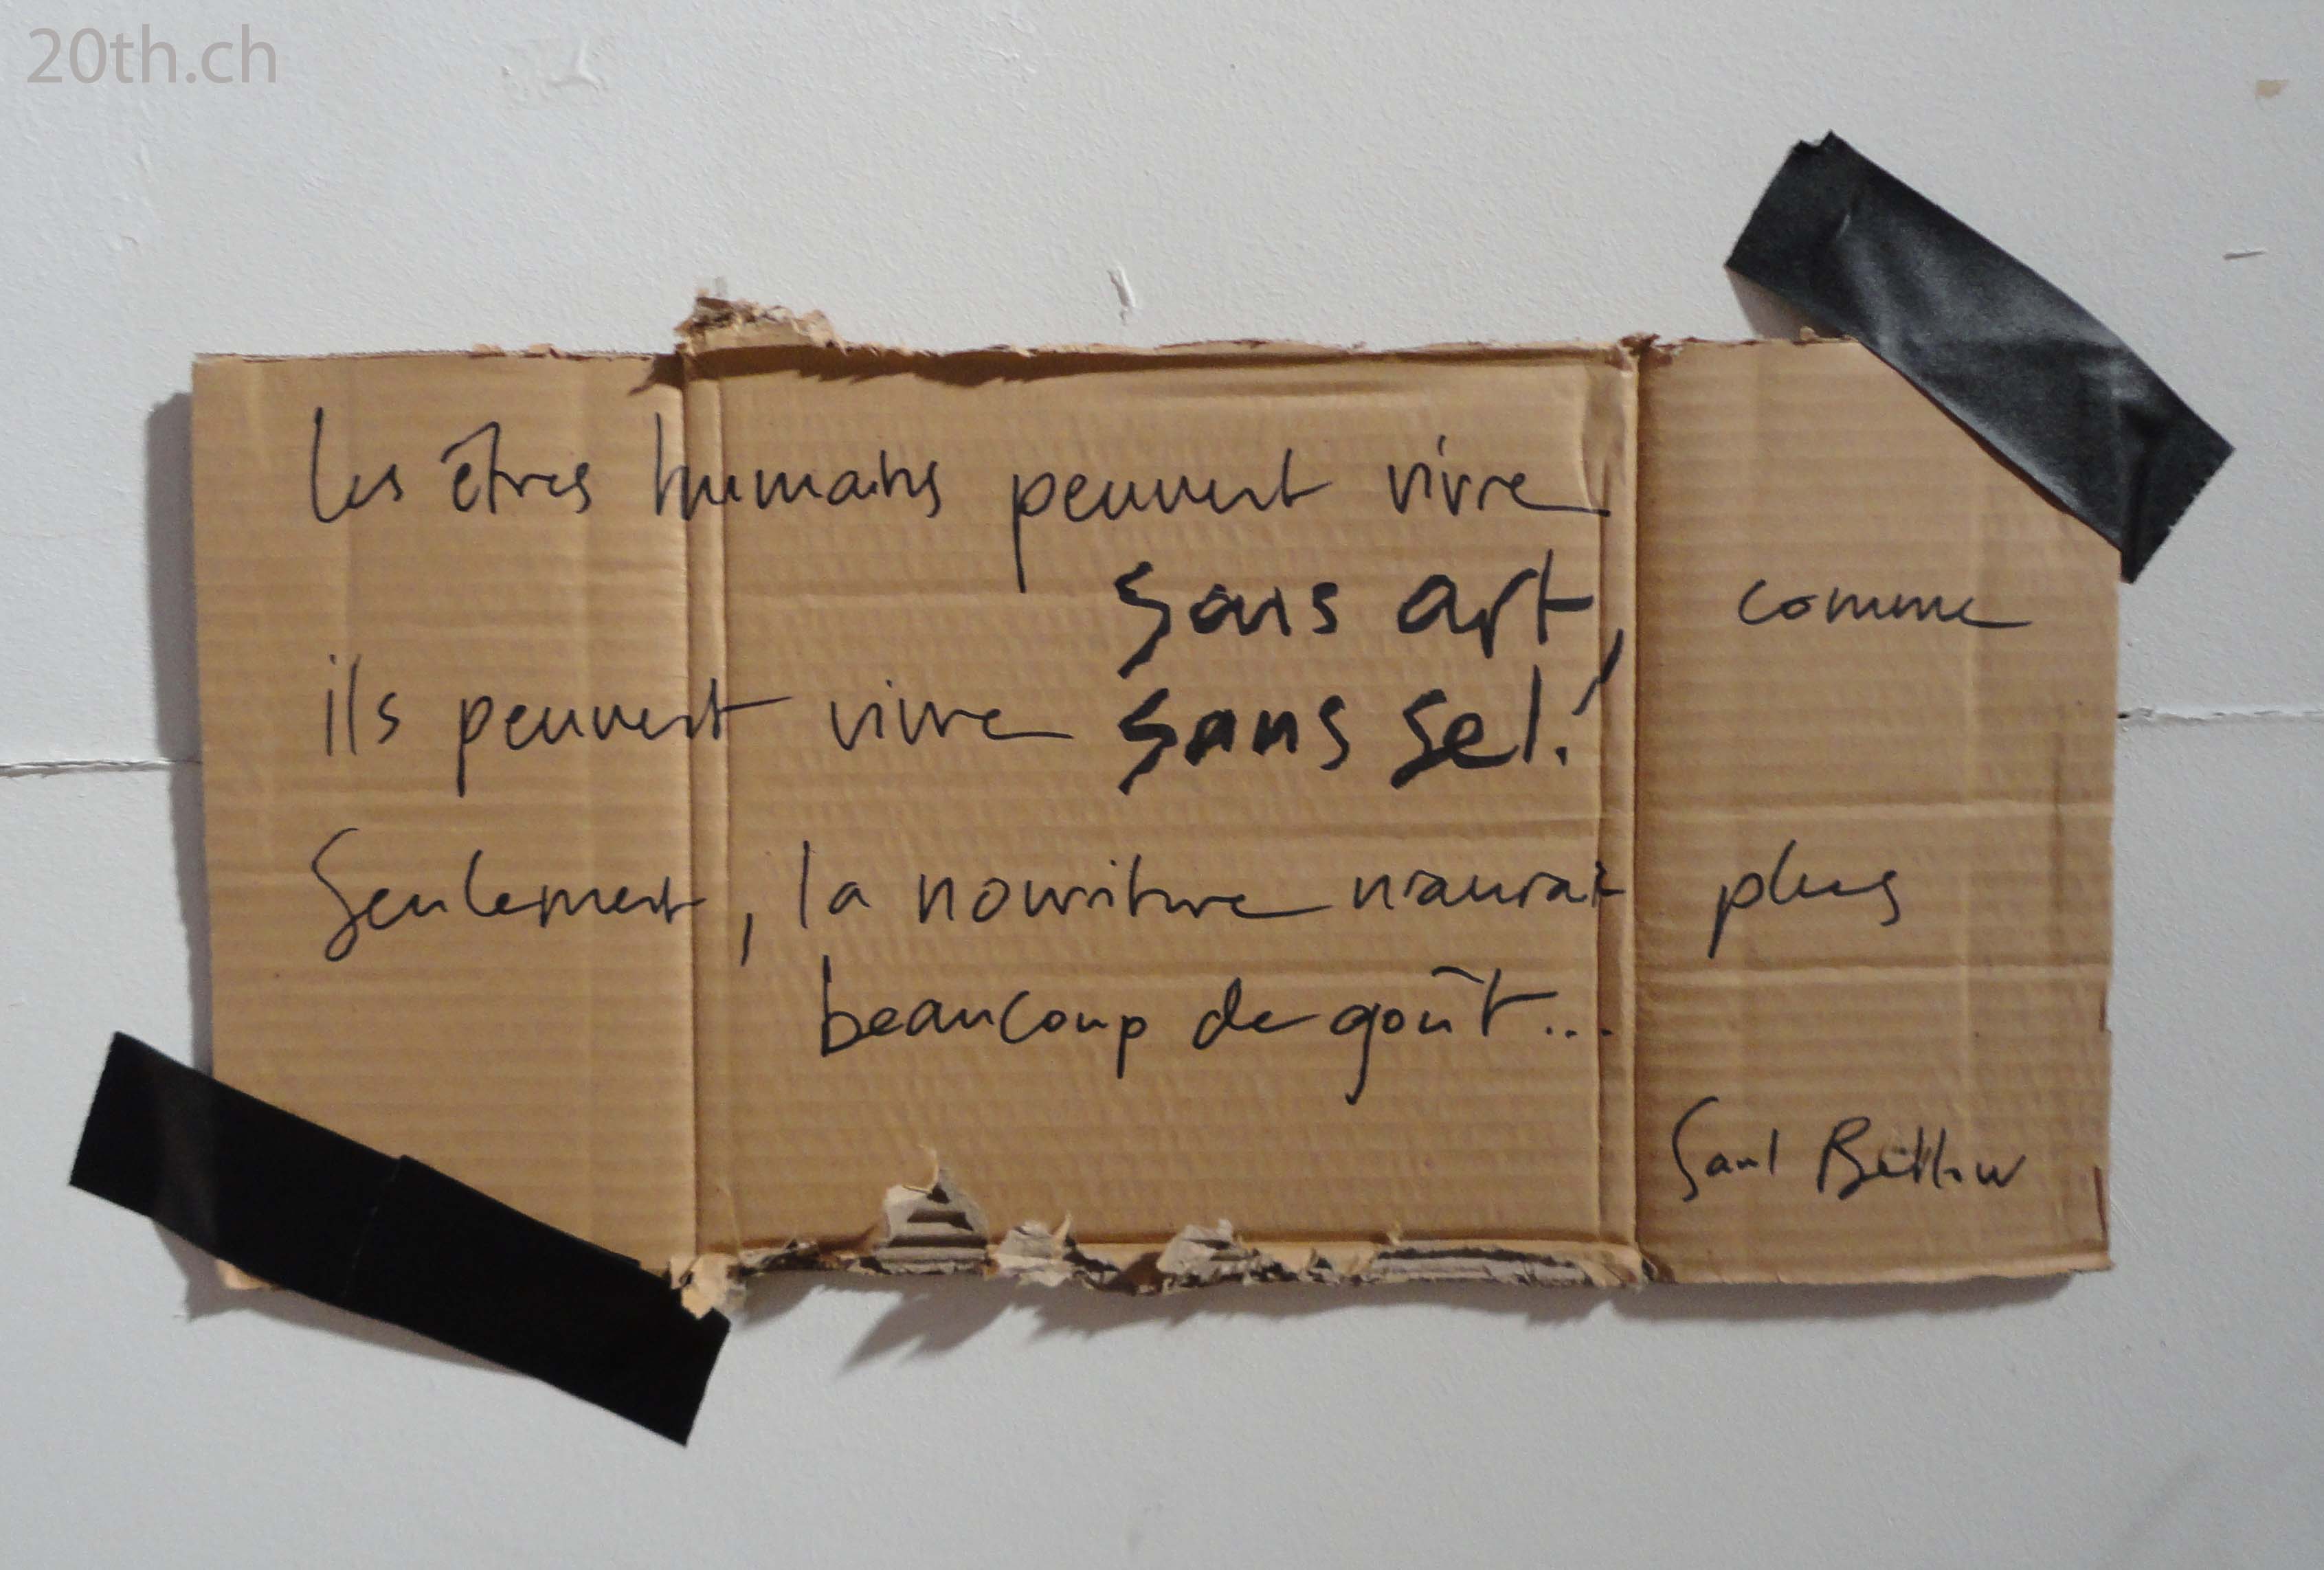 20th.ch
Les êtres humains peuvent vivre
sans art, comme
ils peuvent vivre sans sel!
Seulement, la nourriture n'aurait plus
beaucoup de goût...
Saul Bellow